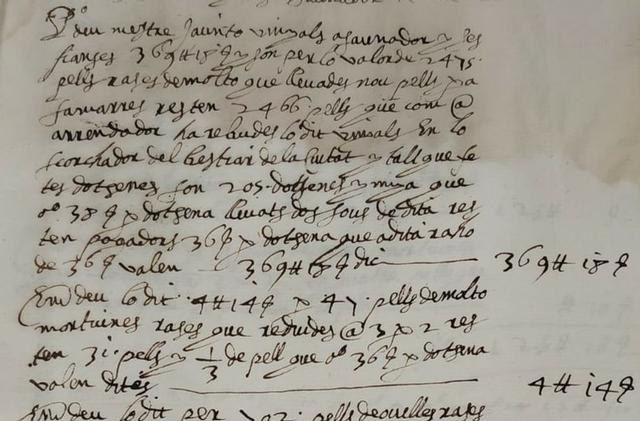 P.º deu mestre Jacinto vinyals assaunador y ses
fianses 369 ⧺ 18 ꝭ y son per lo valor de 2475.
pells rases de molto que llevades nou pells pa
familiares resten 2466. pells que com @
arrendador ha rebudes lo dit vinyals En lo
scorchador del bestiar de la Ciutat y tall que fe
tes dotsenes son 205. dotsenes y mija que
a 38 ꝭ p dotsena llevats dos sous de dita res
ten pagadors 36 ꝭ p dotsena que a dita raho
de 36 ꝭ valen 369 ⧺ 18 ꝭ dic 369 ⧺ 18 ꝭ
deu lo dit 4 ⧺ 14 ꝭ p 47. pells de molto
mortuines rases que reduides @ 3 p 2 res
ten 31. pells y 1/3 de pell que a 36 ꝭ p dotsena
valen dites 4 ⧺ 14 ꝭ
deu lo dit per pells de ovelles rases